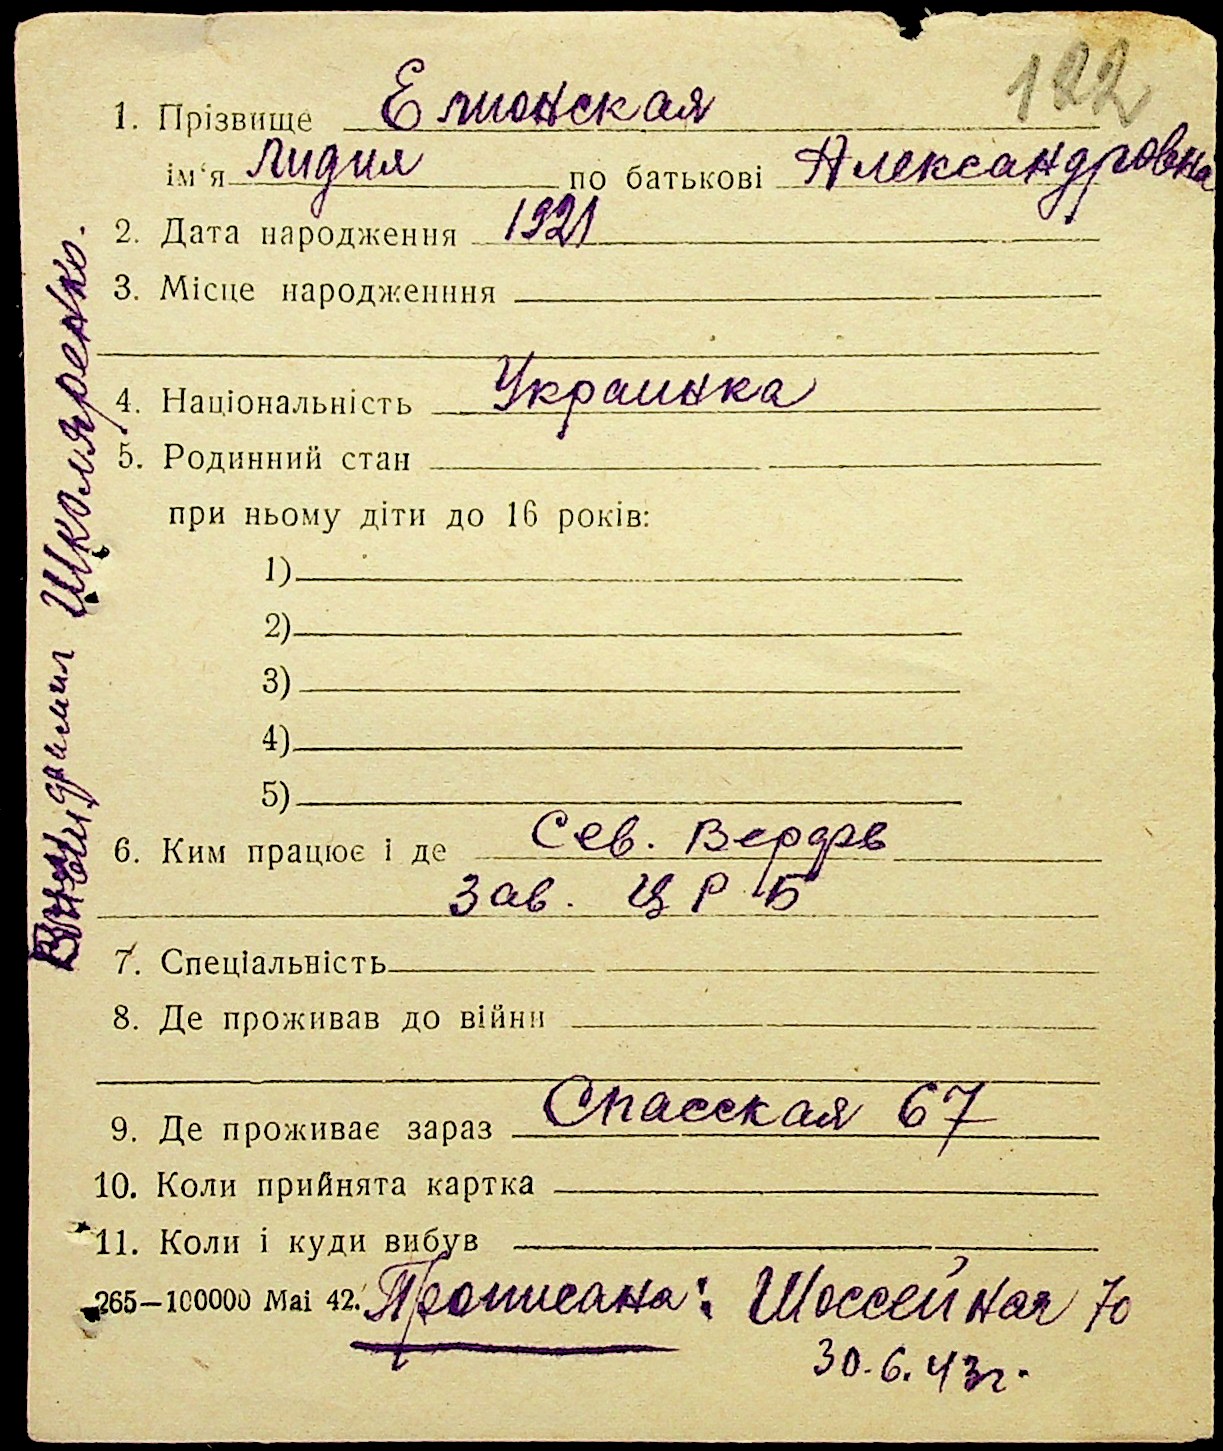 122
1. Прізвище Елионская
ім‘я Лидия по батькові Александровна
2. Дата народження 1921
3. Місце народженння
4. Національність Украинка
5. Родинний стан
при ньому діти до 16 років:
1)
2)
3)
4)
5)
6. Ким працює і де Сев. Верфь
Зав. Ц Р Б
7. Спеціальність
8. Де проживав до війни
9. Де проживає зараз Спасская 67
10. Коли прийнята картка
11. Коли і куди вибув
265—100000 Маі 42. Прописана: Шоссейная 70
30.6.43г.
фамил Шкляренко.